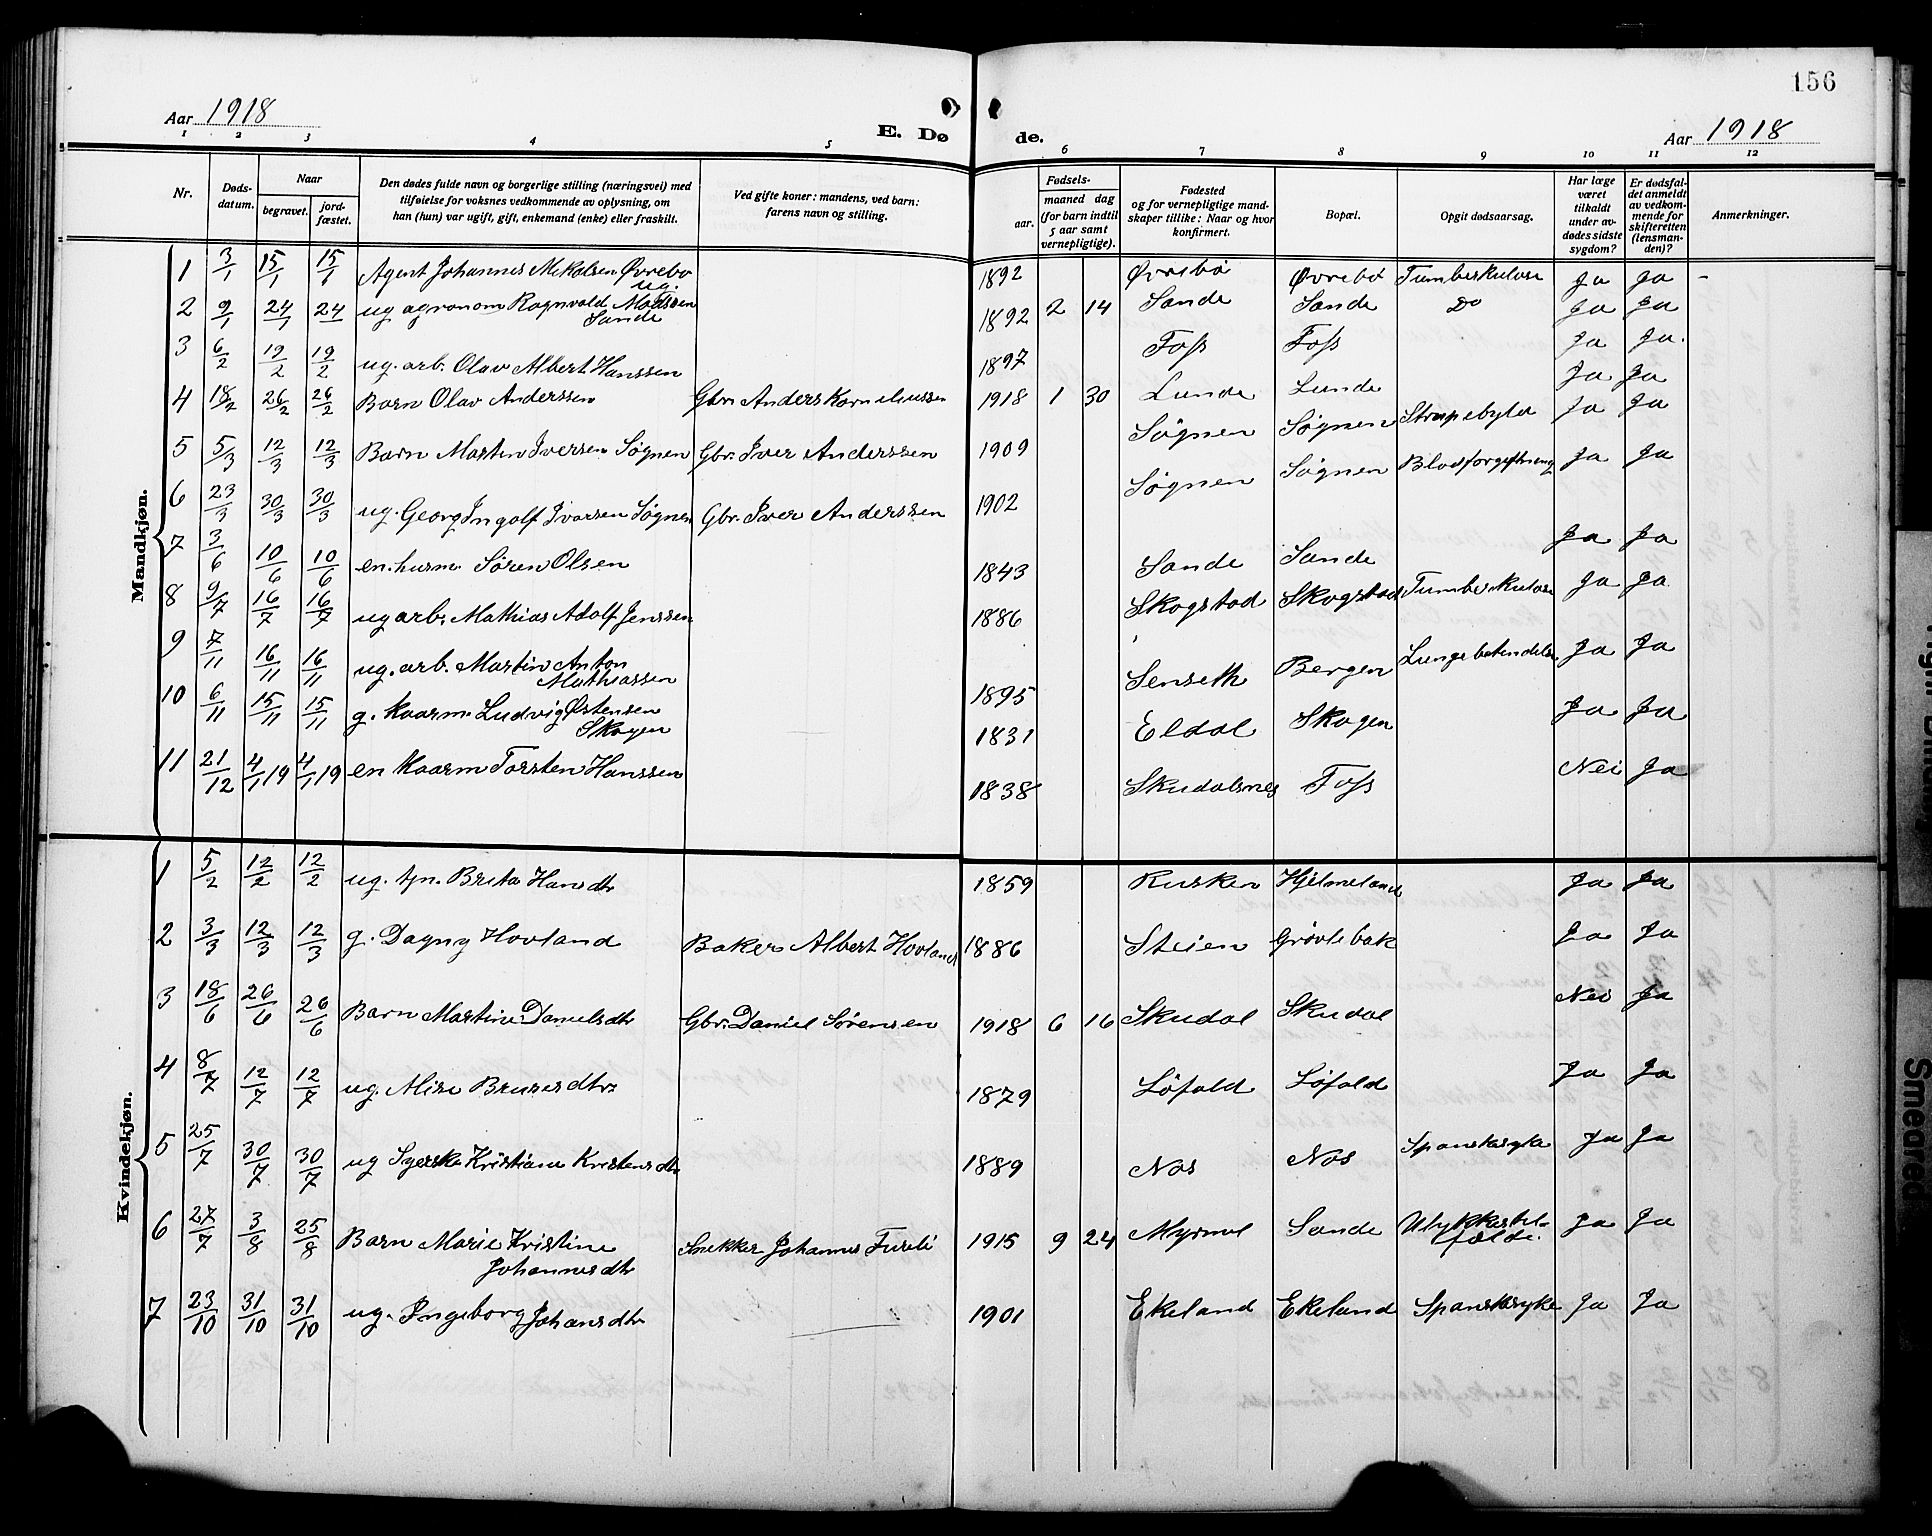 156
Aar 1918
E. Dø
de.
Aar 1918
1 2 3 4 5 6 7 8 9 10 11 12
Nr.
Døds-
datum.
Naar
begravet.
jord-
fæstet.
Den dødes fulde navn og borgerlige stilling (næringsvei) med
tilføielse for voksnes vedkommende av oplysning, om
han (hun) var ugift, gift, enkemand (enke) eller fraskilt.
Ved gifte koner: mandens, ved barn:
farens navn og stilling.
Fødsels-
aar.
maaned dag
(for barn indtil
5 aar samt
vernepligtige).
Fødested
og for vernepligtige mand-
skaper tillike: Naar og hvor
konfirmert.
Bopæl.
Opgit dødsaarsag.
Har læge
været
tilkaldt
under av-
dødes sidste
sygdom?
Er dødsfal-
det anmeldt
av vedkom-
mende for
skifteretten
(lensman-
den)?
Anmerkninger.
Mandkjøn.
1 3/1 15/1 15/1 Agent Johannes Mikalsen Øvrebø ug. 1892 Øvrebø Øvrebø Tumberkulose Ja Ja -
2 9/1 24/1 24 ug agronom Ragnvald Madssen Sande 1892 2 14 Sande Sande Do Ja Ja
3 6/2 19/2 19/2 ug. arb. Olav Albert Hanssen 1897 Foss Foss Ja Ja.
4 18/2 26/2 26/2 Barn Olav Anderssen Gbr. Anders Korneliussen 1918 1 30 Lunde Lunde Ja Ja
5 5/3 12/3 12/3 Barn Martin Iversen Søgnen Gbr. Iver Anderssen 1909 Søgnen Søgnen Strupebyld Ja Ja
6 23/3 30/3 30/3 ug. Georg Ingolf Ivarsen Søgnen Gbr. Iver Anderssen 1902 Søgnen Søgnen Blodforgiftning Ja Ja
7 3/6 10/6 10/6 en. husm. Søren Olsen 1843 Sande Sande Ja Ja
8 9/7 16/7 16/7 ug arb. Mathias Adolf Jenssen 1886 Skogstad Skogstad Tumberkulose Ja Ja
9 7/11 16/11 16/11 ug. arb. Martin Anton Mathiassen 1895 Senseth Bergen Lungebetendelse Ja Ja
10 6/11 15/11 15/11 g. kaarm. Ludvig Østensen Skogen 1831 Eldal Skogen Ja Ja
11 21/12 4/1 19 4/1 19 en kaarm Torsten Hanssen 1838 Skudalsnes Foss Nei Ja
Kvindekjøn.
1 5/2 12/2 12/2 ug. tjn. Brita Hansdtr 1859 Rusken Hjelmeland Ja Ja
2 3/3 12/3 12/3 g. Dagny Hovland Baker Albert Hovland 1886 Steien Grøvlebak Ja Ja
3 18/6 26/6 26/6 Barn Martine Danielsdtr Gbr. Daniel Sørensen 1918 6 16 Skudal Skudal Nei Ja
4 8/7 12/7 12/7 ug. Alise Brunesdtr 1879 Løfald Løfald Ja Ja
5 25/7 30/7 30/7 ug Syerske Kristiane Kristensdtr 1889 Nos Nos Spanskesyke Ja Ja
6 27/7 3/8 25/8 Barn Marie Kristine Johannesdtr Snekker Johannes Fureli 1915 9 24 Myrmel Sande Ulykkestil-
fælde. Ja Ja
7 23/10 31/10 31/10 ug. Ingeborg Johansdtr 1901 Ekeland Ekeland Spanskesyke Ja Ja
Smedred